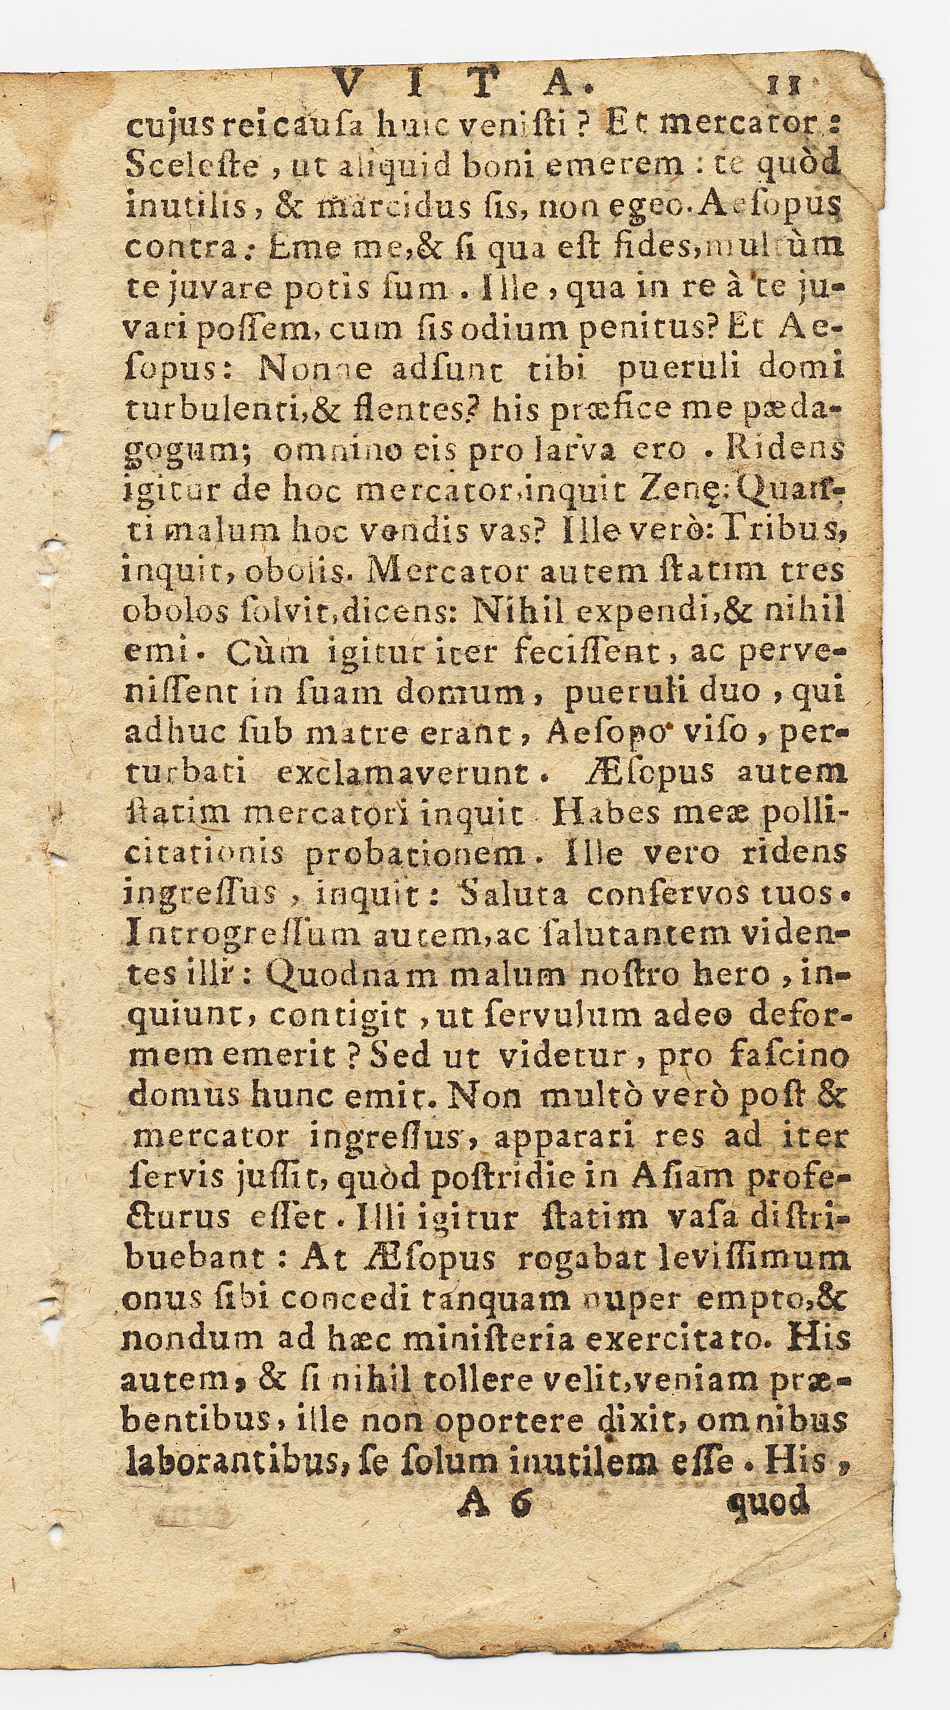 VITA. 11
cujus rei cauſa huic veniſti? Et mercator:
Sceleſte, ut aliquid boni emerem: te quòd
inutilis, & marcidus ſis, non egeo. Aeſopus
contra: Eme me, & ſi qua eſt fides, multùm
te juvare potis ſum. Ille, qua in re à te ju-
vari poſſem, cum ſis odium penitus? Et Ae-
ſopus: Nonne adſunt tibi pueruli domi
turbulenti, & flentes? his præfice me pæda-
gogum; omnino eis pro larva ero. Ridens
igitur de hoc mercator, inquit Zenę: Quan-
ti malum hoc vendis vas? Ille verò: Tribus,
inquit, obolis. Mercator autem ſtatim tres
obolos ſolvit, dicens: Nihil expendi, & nihil
emi. Cùm igitur iter feciſſent, ac perve-
niſſent in ſuam domum, pueruli duo, qui
adhuc ſub matre erant, Aeſopo viſo, per-
turbati exclamaverunt. Æſopus autem
ſtatim mercatori inquit Habes meæ polli-
citationis probationem. Ille vero ridens
ingreſſus, inquit: Saluta conſervos tuos.
Introgreſſum autem, ac ſalutantem viden-
tes illi: Quodnam malum noſtro hero, in-
quiunt, contigit, ut ſervulum adeo defor-
mem emerit? Sed ut videtur, pro faſcino
domus hunc emit. Non multò verò poſt &
mercator ingreſſus, apparari res ad iter
ſervis juſſit, quòd poſtridie in Aſiam profe-
cturus eſſet. Illi igitur ſtatim vaſa diſtri-
buebant: At Æſopus rogabat leviſſimum
onus ſibi concedi tanquam nuper empto, &
nondum ad hæc miniſteria exercitato. His
autem, & ſi nihil tollere velit, veniam præ-
bentibus, ille non oportere dixit, omnibus
laborantibus, ſe ſolum inutilem eſſe. His,
A 6 quod